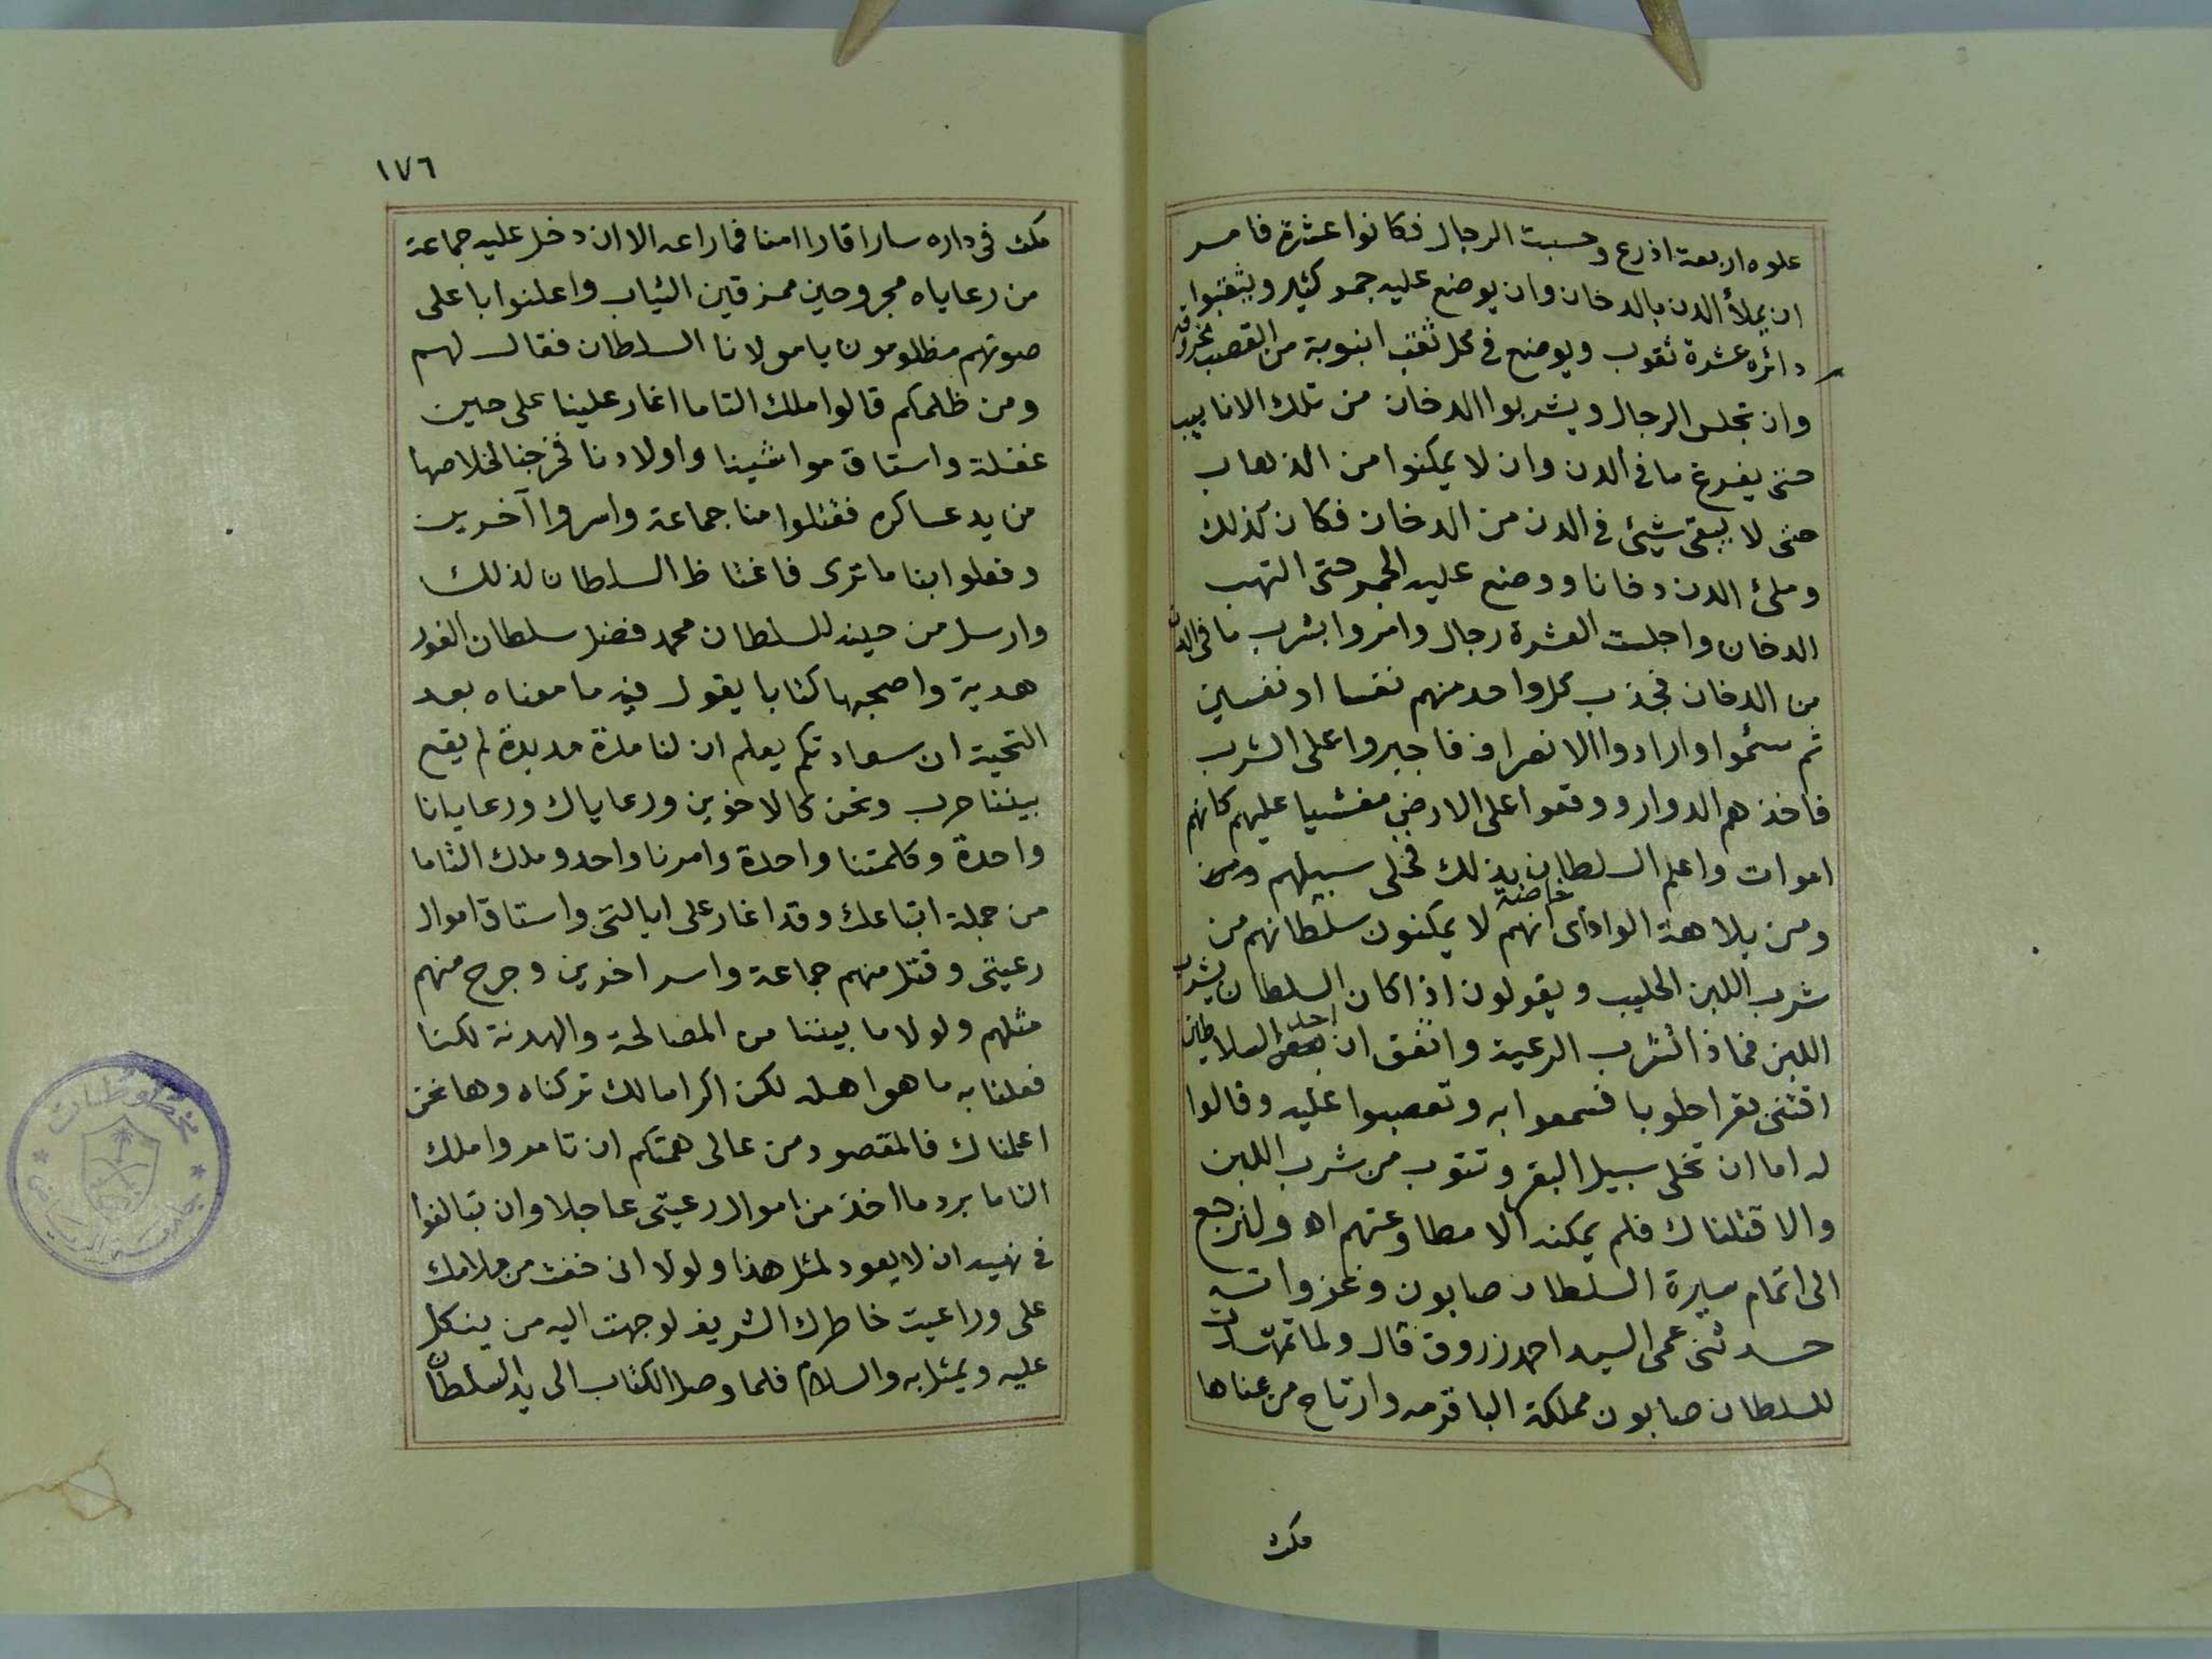 علوه اربعة اذرع وحسبت الرجال فكانوا عشرة فامر
ان يملأ الدن بالدخان وان يوضع عليه جمر كثير ويثقبوا
دائره عشرة ثقوب ويوضع في كل ثقب انبوبة من القصب مخروقة
وان تجلس الرجال ويشربوا الدخان من تلك الانابيب
حتى يفرغ ما في الدن وان لا يمكنوا من الذهاب
حتى لا يبقى شيئ في الدن من الدخان فكان كذلك
وملئ الدن دخانا ووضع عليه الجمر حتى التهب
الدخان واجلست العشرة رجال وامروا بشرب ما في الدن
من الدخان فجذب كل واحد منهم نفسا او نفسين
ثم سئموا وارادوا الانصراف فاجبروا على الشرب
فاخذهم الدوار ووقعوا على الارض مغشيا عليهم كانهم
اموات واعلم السلطان بذلك فخلى سبيلهم
ومن بلاهة الواداى خاصة انهم لا يمكنون سلطانهم من
شرب اللبن الحليب ويقولون اذا كان السلطان يشرب
اللبن فماذا تشرب الرعية واتفق ان احد السلاطين
اقتنى بقرا حلوبا فسمعوا به وتعصبوا عليه وقالوا
له اما ان تخلى سبيل البقر وتتوب من شرب اللبن
والا قتلناك فلم يمكنه الا مطاوعتهم اه ولنرجع
الى اتمام سيرة السلطان صابون وغزواته
حدثنى عمى السيد احمد زروق قال ولما تمهدت
للسلطان صابون مملكة الباقرمه وارتاح من عناها
مكث
١٧٦
مكث فى داره سارا قارا امنا فما راعه الا ان دخل عليه جماعة
من رعاياه مجروحين ممزقين الثياب واعلنوا باعلى
صوتهم مظلومون يا مولانا السلطان فقال لهم
ومن ظلمكم قالوا ملك التاما اغار علينا على حين
غفلة واستاق مواشينا واولادنا فخرجنا لخلاصها
من يد عساكره فقتلوا منا جماعة واسروا آخرين
وفعلوا بنا ما ترى فاغتاظ السلطان لذلك
وارسل من حينه للسلطان محمد فضل سلطان الفور
هدية واصحبها كتابا يقول فيه ما معناه بعد
التحية ان سعادتكم يعلم ان لنا مدة مديدة لم يقع
بيننا حرب ونحن كالاخوين ورعاياك ورعايانا
واحدة وكلمتنا واحدة وامرنا واحد وملك التاما
من جملة اتباعك وقد اغار على ايالتى واستاق اموال
رعيتى وقتل منهم جماعة واسر اخرين وجرح منهم
مثلهم ولولا ما بيننا من المصالحة والهدنة لكنا
فعلنا به ما هو اهله لكن اكراما لك تركناه وها نحن
اعلمناك فالمقصود من عالى همتكم ان تامروا ملك
التاما برد ما اخذ من اموال رعيتى عاجلا وان تبالغوا
فى نهيه ان لا يعود لمثل هذا ولولا انى خفت من ملامك
على وراعيت خاطرك الشريف لوجهت اليه من ينكل
عليه ويمثل به والسلام فلما وصل الكتاب الى يد السلطان
مخطوطات
جامعة الرياض